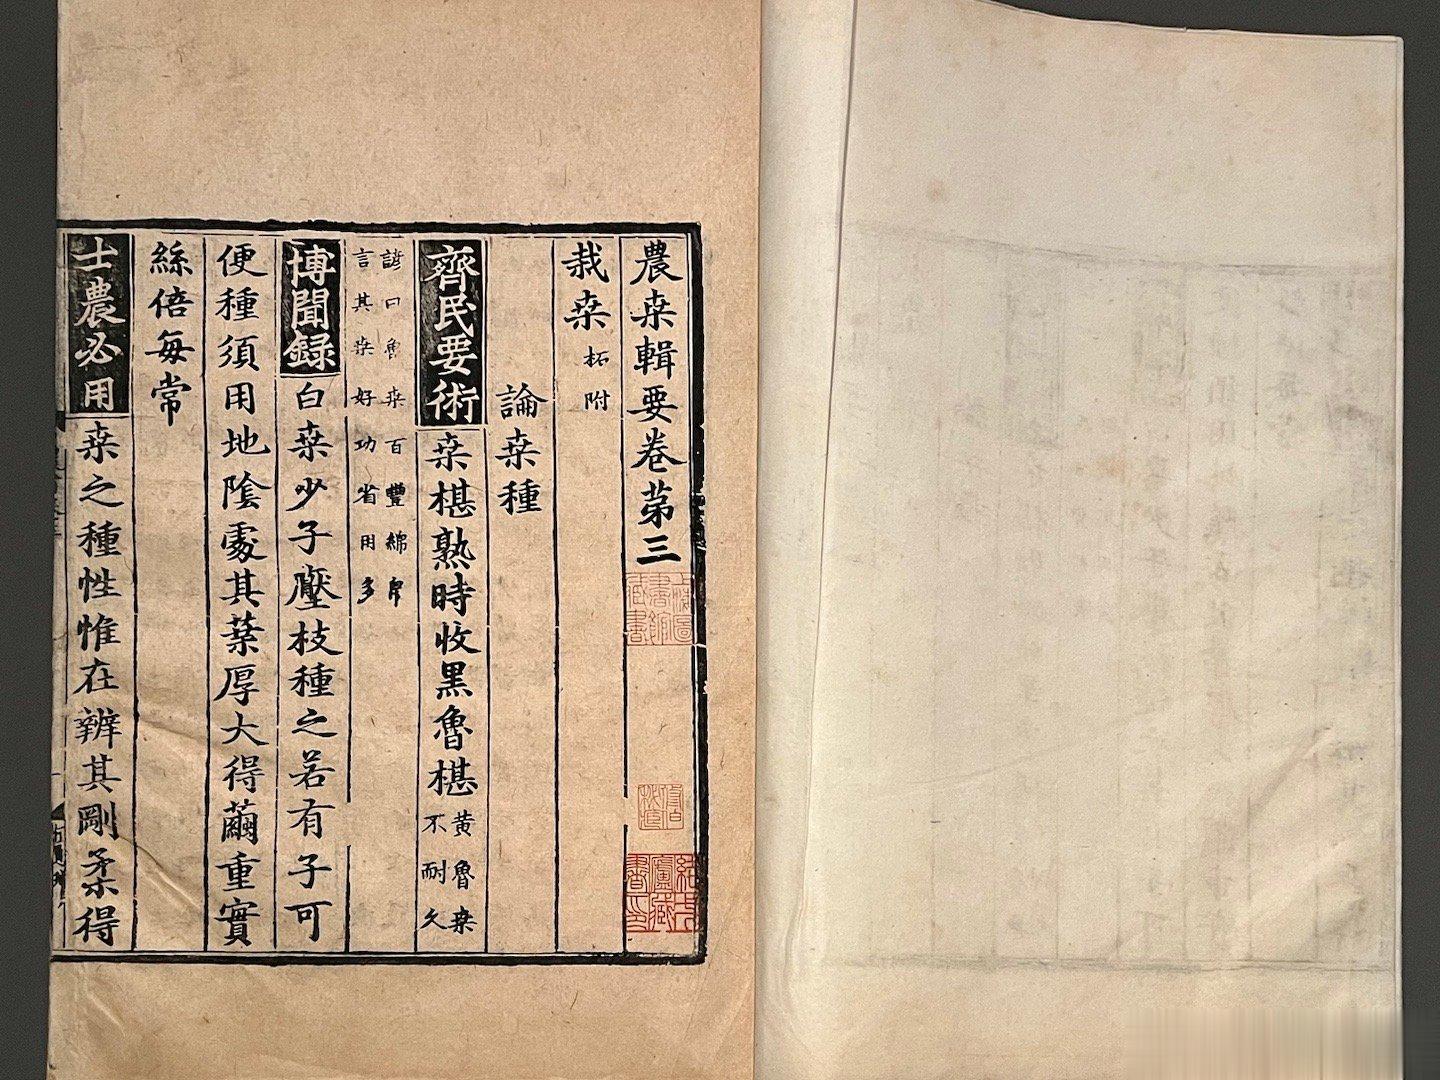 農桒輯要卷苐三
栽桒 柘附
論桒種
齊民要術 桒椹熟時收黑魯椹 黃魯桒不耐久
諺曰魯桒百豐綿帛
言其桒好功省用多
博聞録 白桒少子壓枝種之若有子可
便種須用地隂處其葉厚大得繭重實
絲倍每常
士農必用 桒之種性惟在辨其剛柔得